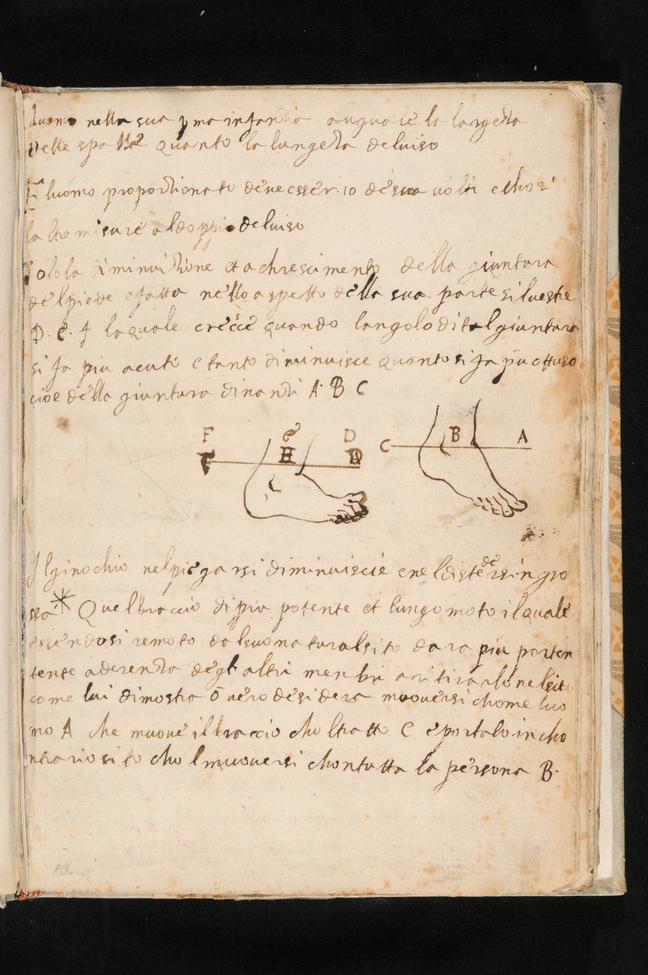 luomo nella sua pma infantia augualie la largeza
delle spalle quanto la lungeza deluiso
E luomo proportionato deueesser io desua uolti echosi
laltre misure aldoppio deluiso
Solola diminuitione etachrescimento della giuntura
delpiede efatta nello aspetto della sua parte siluestre
D. e. f laquale crescie quando langolo ditalgiuntura
si fa piu acuto etanto diminuisce quanto si fa piu ottuso
cioe della giuntura dinanzi A B C
F e D C B A
H
Ilginochio nelpiegarsi diminuiscie enel distendersi ingro
ssa * Quelbraccio dipiu potente et lungo moto ilquale
essendosi remoto dalsuo naturalsito dara piu
tente aderenza degli altri menbri aritirarlo nelsito
come lui dimostra o uero desidera muouersi chome luo
mo A che muoue ilbraccio chol tratto C eportalo incho
ntrario sito chol muouersi chontutta la persona B.